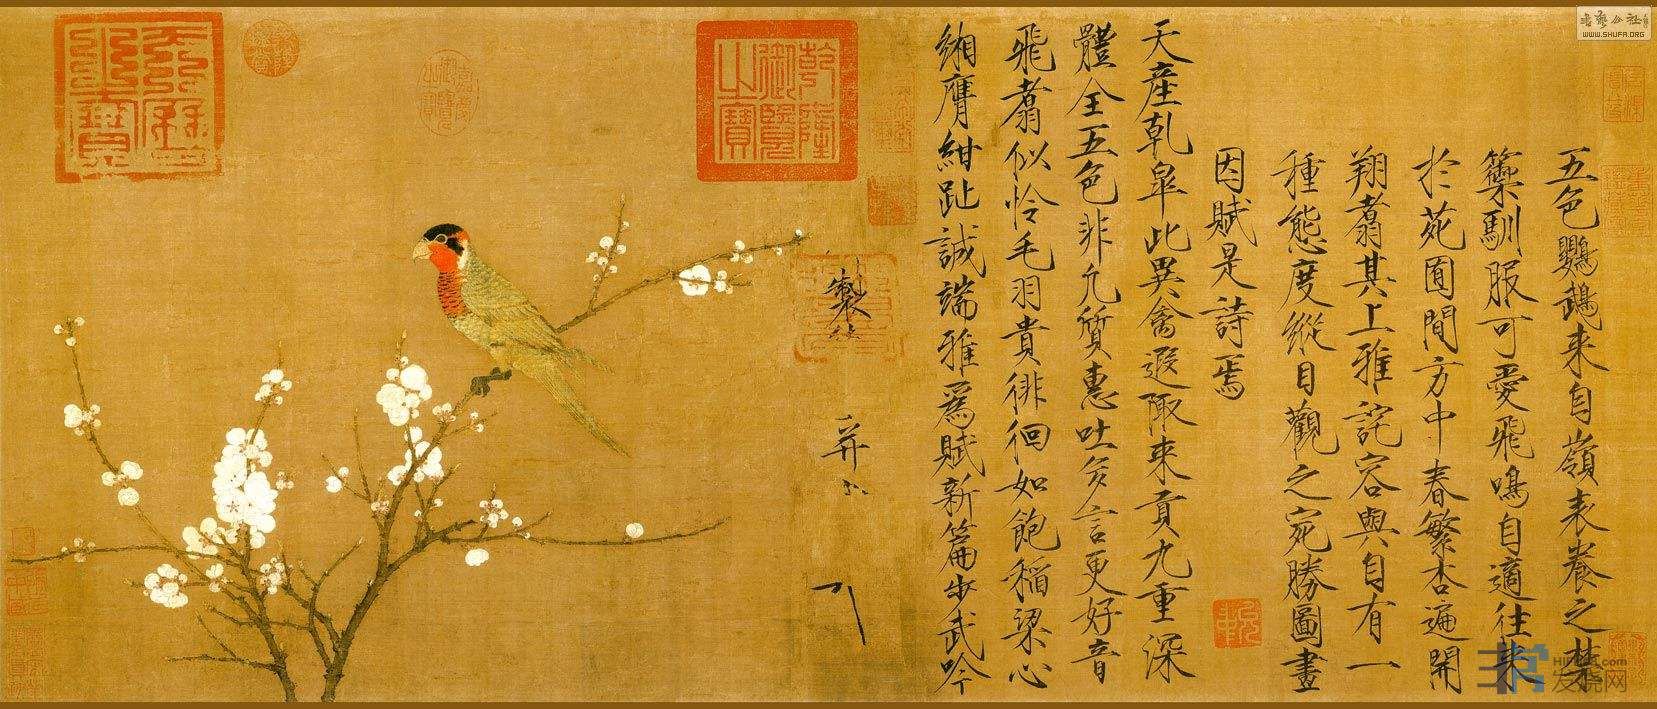 五色鸚鵡来自嶺表養之禁
籞馴服可愛飛鳴自適往来
於苑囿間方中春繁杏遍開
翔翥其上雅詫容與自有一
種態度縱目觀之宛勝圖畫
因賦是詩焉
天産乾皐此異禽遐陬来貢九重深
體全五色非凡質惠吐多言更好音
飛翥似憐毛羽貴徘徊如飽稻粱心
緗膺紺趾誠端雅爲賦新篇步武吟
製
并
乾隆
御覽
之寶
WWW.SHUFA.ORG
发烧网